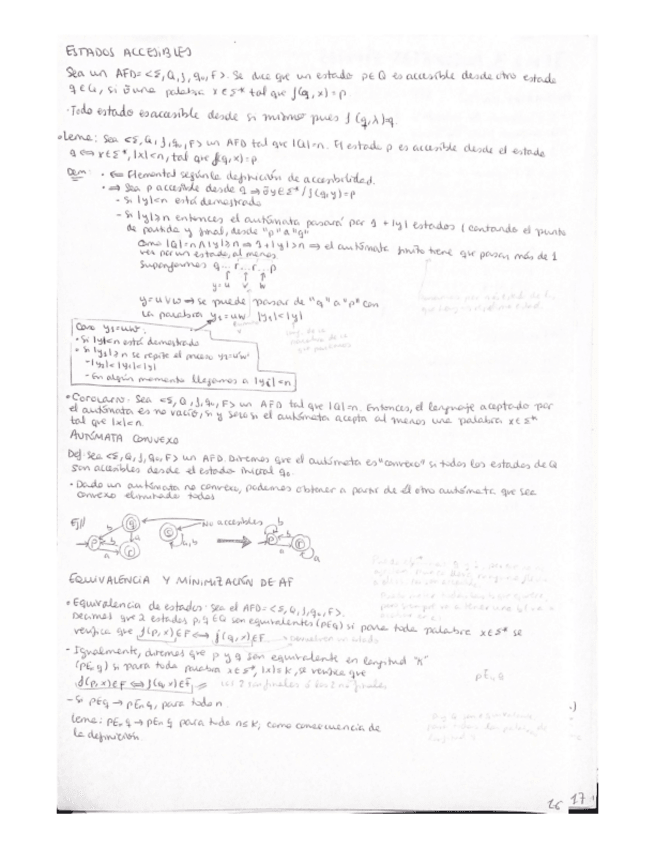 ESTADOS ACCESIBLES
Sea un AFD=<Σ, Q, f, q₀, F>. Se dice que un estado p∈Q es accesible desde otro estado
q∈Q, si ∃ una palabra x∈Σ* tal que f(q,x)=p
·Todo estado es accesible desde si mismo pues f(q,λ)=q.
•Lema: Sea <Σ, Q, f, q₀, F> un AFD tal que |Q|=n. El estado p es accesible desde el estado
q ⇔ x∈Σ*, |x|<n, tal que f(q,x)=p
Dem: • ⇐ Elemental según la definición de accesibilidad.
• ⇒ Sea p accesible desde q ⇒ ∃y∈Σ* / f(q,y)=p
- Si |y|<n está demostrado
- Si |y|≥n entonces el autómata pasará por 1+|y| estados (contando el punto
de partida y final, desde "p" a "q"
Como |Q|=n ∧ |y|≥n ⇒ 1+|y|>n ⇒ el autómata finito tiene que pasar más de 1
vez por un estado, al menos
Supongamos q...r...r...p
y= u v w
y=uvw ⇒ se puede pasar de "q" a "p" con
la palabra y₁=uw |y₁|<|y|
Como y₁=uw
• Si |y₁|<n está demostrado
• Si |y₁|≥n se repite el proceso y₂=u'w'
- |y₂|<|y₁|<|y|
- En algún momento llegamos a |yᵢ|<n
•Corolario: Sea <Σ, Q, f, q₀, F> un AFD tal que |Q|=n. Entonces, el lenguaje aceptado por
el autómata es no vacío, si y solo si el autómata acepta al menos una palabra x∈Σ*
tal que |x|<n
AUTÓMATA CONVEXO
Def: Sea <Σ, Q, f, q₀, F> un AFD. Diremos que el autómata es "convexo" si todos los estados de Q
son accesibles desde el estado inicial q₀
• Dado un autómata no convexo, podemos obtener a partir de él otro autómata que sea
convexo eliminando todos
Ej// No accesibles
p q r s a b a,b
EQUIVALENCIA Y MINIMIZACIÓN DE AF
•Equivalencia de estados: Sea el AFD=<Σ, Q, f, q₀, F>.
Decimos que 2 estados p,q∈Q son equivalentes (pEq) si para toda palabra x∈Σ* se
verifica que f(p,x)∈F ⇔ f(q,x)∈F
- Igualmente, diremos que p y q son equivalente en longitud "k"
(pEₖq) si para toda palabra x∈Σ*, |x|≤k, se verifica que
f(p,x)∈F ⇔ f(q,x)∈F
- Si pEq → pEₙq, para todo n
Lema: pEₖq → pEₙq para todo n≤k, como consecuencia de
la definición
16 17